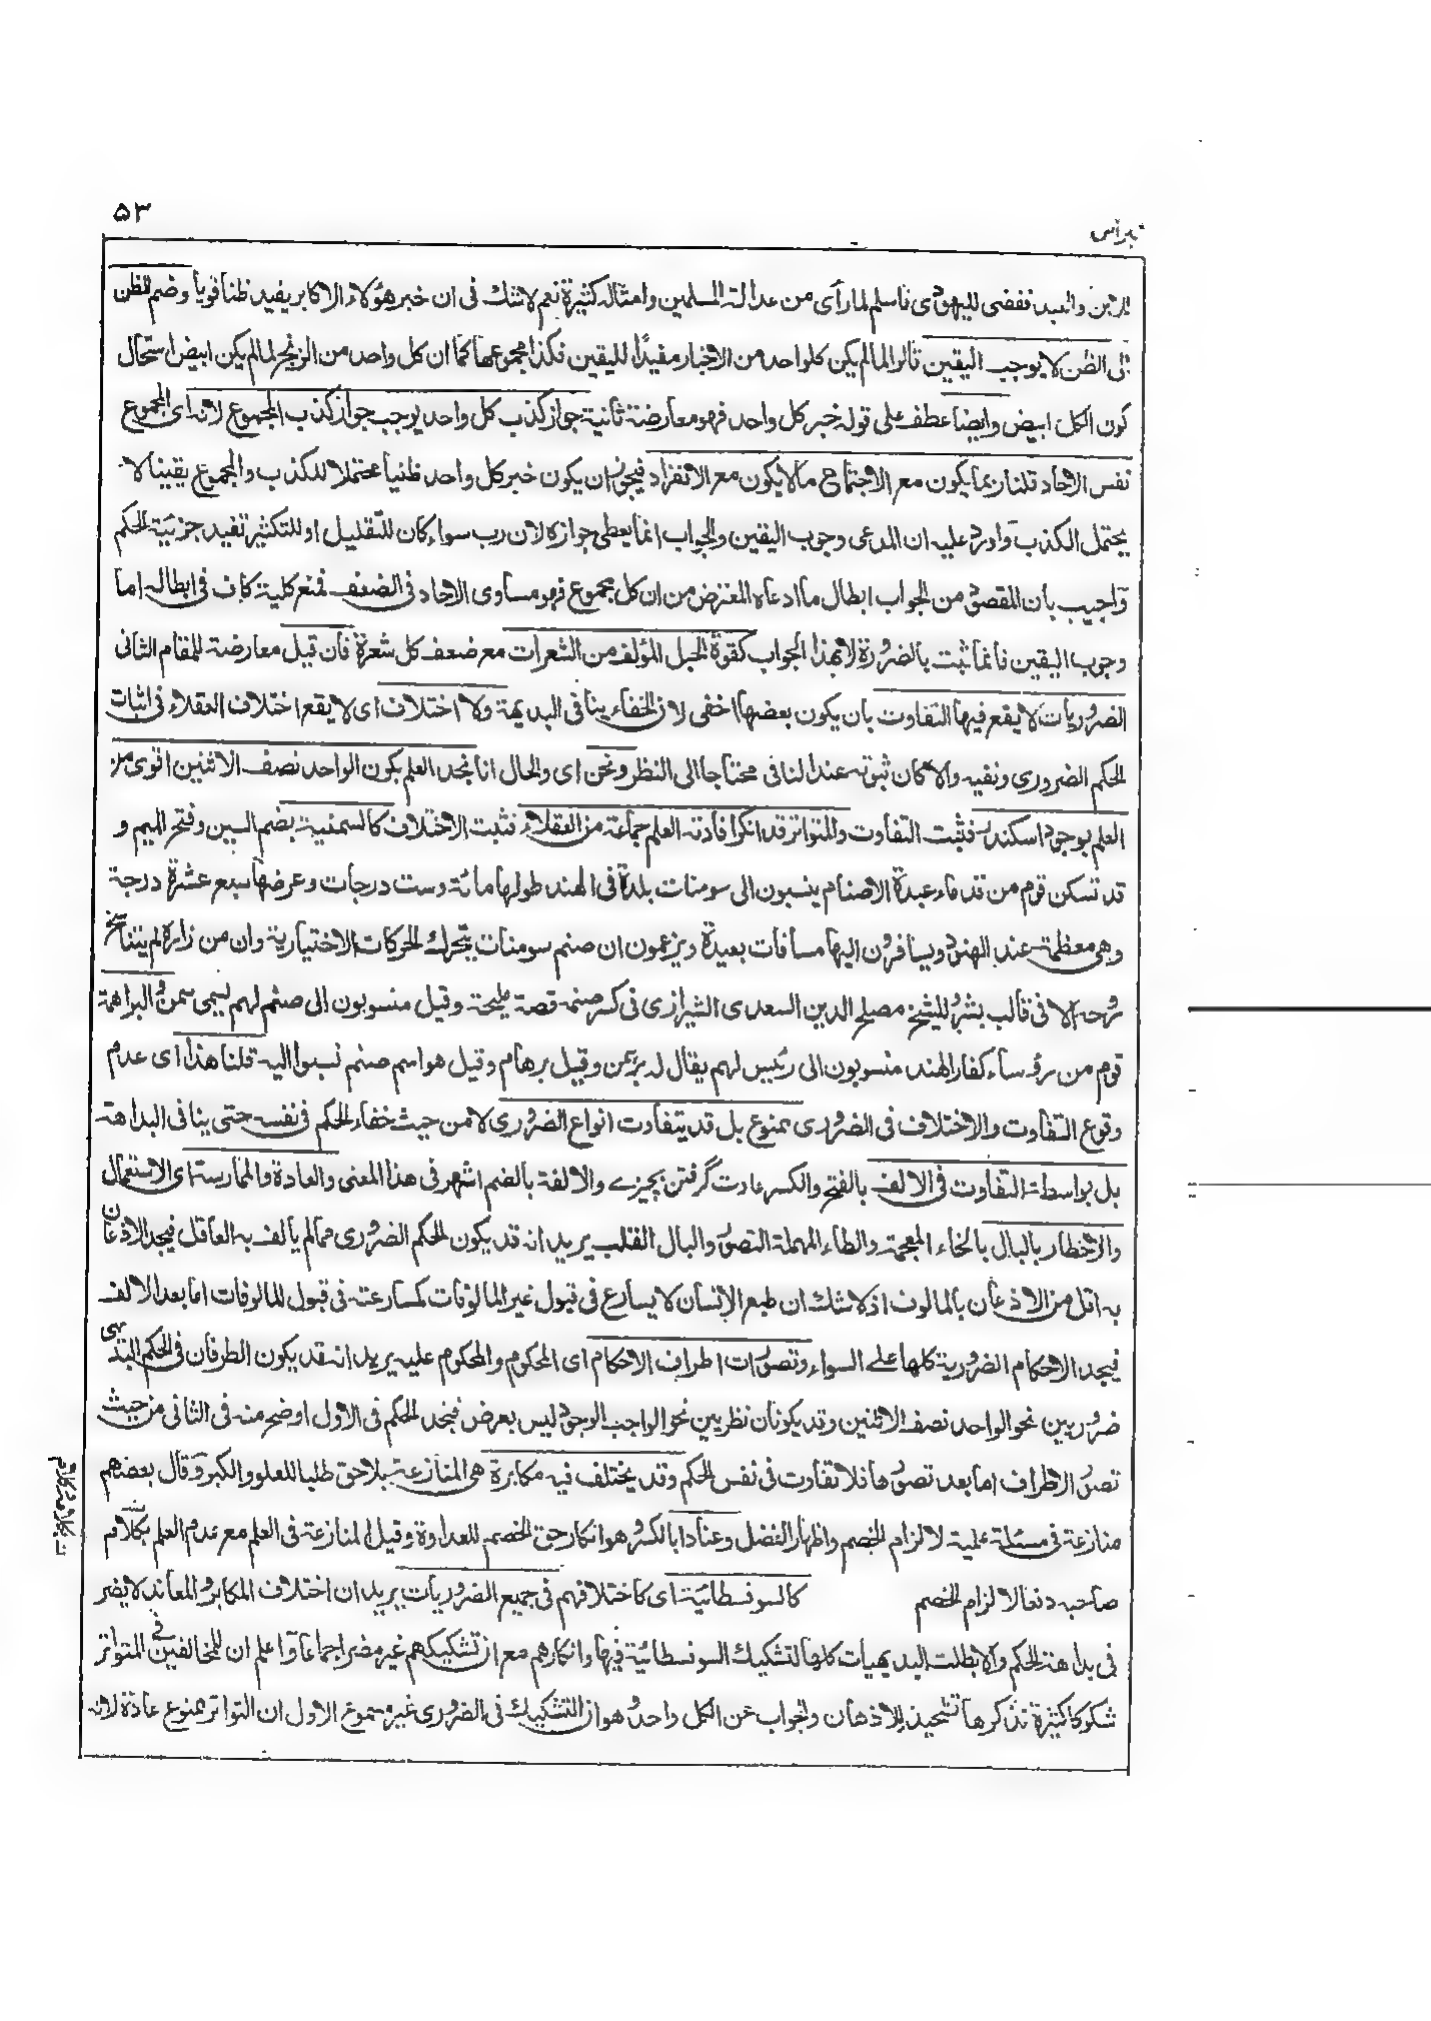 ۵۳
نبراس
الابن والعبد فقضى لليهودى فاسلم لما رأى من عدالة المسلمين وامثاله كثيرة نعم لا شك فى ان خبر هؤلاء الاكابر يفيد ظنا قويا وضم الظن
الى الظن لا يوجب اليقين قالوا لما لم يكن كل واحد من الاخبار مفيدًا لليقين فكذا مجموعها كما ان كل واحد من الزنج لما لم يكن ابيض استحال
كون الكل ابيض وايضا عطف على قوله خبر كل واحد فهو معارضة ثانية جواز كذب كل واحد يوجب جواز كذب المجموع لانه اى المجموع
نفس الاحاد قلنا ربما يكون مع الاجتماع ما لا يكون مع الانفراد فيجوز ان يكون خبر كل واحد ظنيا محتملا للكذب والمجموع يقينا لا
يحتمل الكذب واورد عليه ان المدعى وجوب اليقين والجواب انما يعطى جوازه لان رب سواء كان للتقليل او للتكثير تفيد جزئية الحكم
واجيب بان المقصود من الجواب ابطال ما ادعاه المعترض من ان كل مجموع فهو مساوى الاحاد فى الضعف فمنع كلية كاف فى ابطاله اما
وجوب اليقين فانما ثبت بالضرورة لا بهذا الجواب كقوة الحبل المؤلف من الشعرات مع ضعف كل شعرة فان قيل معارضة للمقام الثانى
الضروريات لا يقع فيها التفاوت بان يكون بعضها اخفى لان الخفاء ينافى البديهة ولا اختلاف اى لا يقع اختلاف العقلاء فى اثبات
الحكم الضرورى ونفيه والا لكان ثبوته عند النافى محتاجا الى النظر ونحن اى والحال انا نجد العلم بكون الواحد نصف الاثنين اقوى من
العلم بوجود اسكندر فثبت التفاوت والمتواتر قد انكر افادته العلم جماعة من العقلاء فثبت الاختلاف كالسمنية بضم السين وفتح الميم و
قد تسكن قوم من قدماء عبدة الاصنام ينسبون الى سومنات بلدة فى الهند طولها مائة وست درجات وعرضها سبع عشرة درجة
وهى معظمة عند الهنود ويسافرون اليها مسافات بعيدة ويزعمون ان صنم سومنات يتحرك الحركات الاختيارية وان من زاره لم يتناسخ
روحه الا فى قالب بشر وللشيخ مصلح الدين السعدى الشيرازى فى كسر صنمه قصة مليحة وقيل منسوبون الى صنم لهم يسمى سمن والبراهمة
قوم من رؤساء كفار الهند منسوبون الى رئيس لهم يقال له برهمن وقيل برهام وقيل هو اسم صنم نسبوا اليه قلنا هذا اى عدم
وقوع التفاوت والاختلاف فى الضرورى ممنوع بل قد يتفاوت انواع الضرورى لا من حيث خفاء الحكم فى نفسه حتى ينافى البداهة
بل بواسطة التفاوت فى الالف بالفتح والكسر عادت گرفتن بچيزے والالفة بالضم اشهر فى هذا المعنى والعادة والممارسة اى الاستعمال
والاخطار بالبال بالخاء المعجمة والطاء المهملة التصور والبال القلب يريد انه قد يكون الحكم الضرورى مما لم يألف به العاقل فيجد الاذعان
به اقل من الاذعان بالمالوف اذ لا شك ان طبع الانسان لا يسارع فى قبول غير المالوفات كمسارعته فى قبول المالوفات اما بعد الالف
فيجد الاحكام الضرورية كلها علے السواء وتصورات اطراف الاحكام اى المحكوم والمحكوم عليه يريد انه قد يكون الطرفان فى الحكم البديهى
ضروريين نحو الواحد نصف الاثنين وقد يكونان نظريين نحو الواجب الوجود ليس بعرض فنجد الحكم فى الاول اوضح منه فى الثانى من حيث
تصور الاطراف اما بعد تصورها فلا تفاوت فى نفس الحكم وقد يختلف فيه مكابرة هى المنازعة بلا حق طلبا للعلو والكبر وقال بعضهم
منازعة فى مسئلة علمية لا لزام الخصم واظهار الفضل وعنادا بالكسر وهو انكار حق الخصم للعداوة وقيل المنازعة فى العلم مع عدم العلم بكلامه
صاحبه دفعا لا لزام الخصم كالسوفسطائية اى كاختلافهم فى جميع الضروريات يريد ان اختلاف المكابر والمعاند لا يضر
فى بداهة الحكم والا بطلت البديهيات كلها لتشكيك السوفسطائية فيها وانكارهم مع ان تشكيكهم غير مضر اجماعا واعلم ان للمخالفين فى المتواتر
شكوكا كثيرة نذكرها تشحيذ للاذهان والجواب عن الكل واحد وهو ان التشكيك فى الضرورى غير مسموع الاول ان التواتر ممنوع عادة لانه